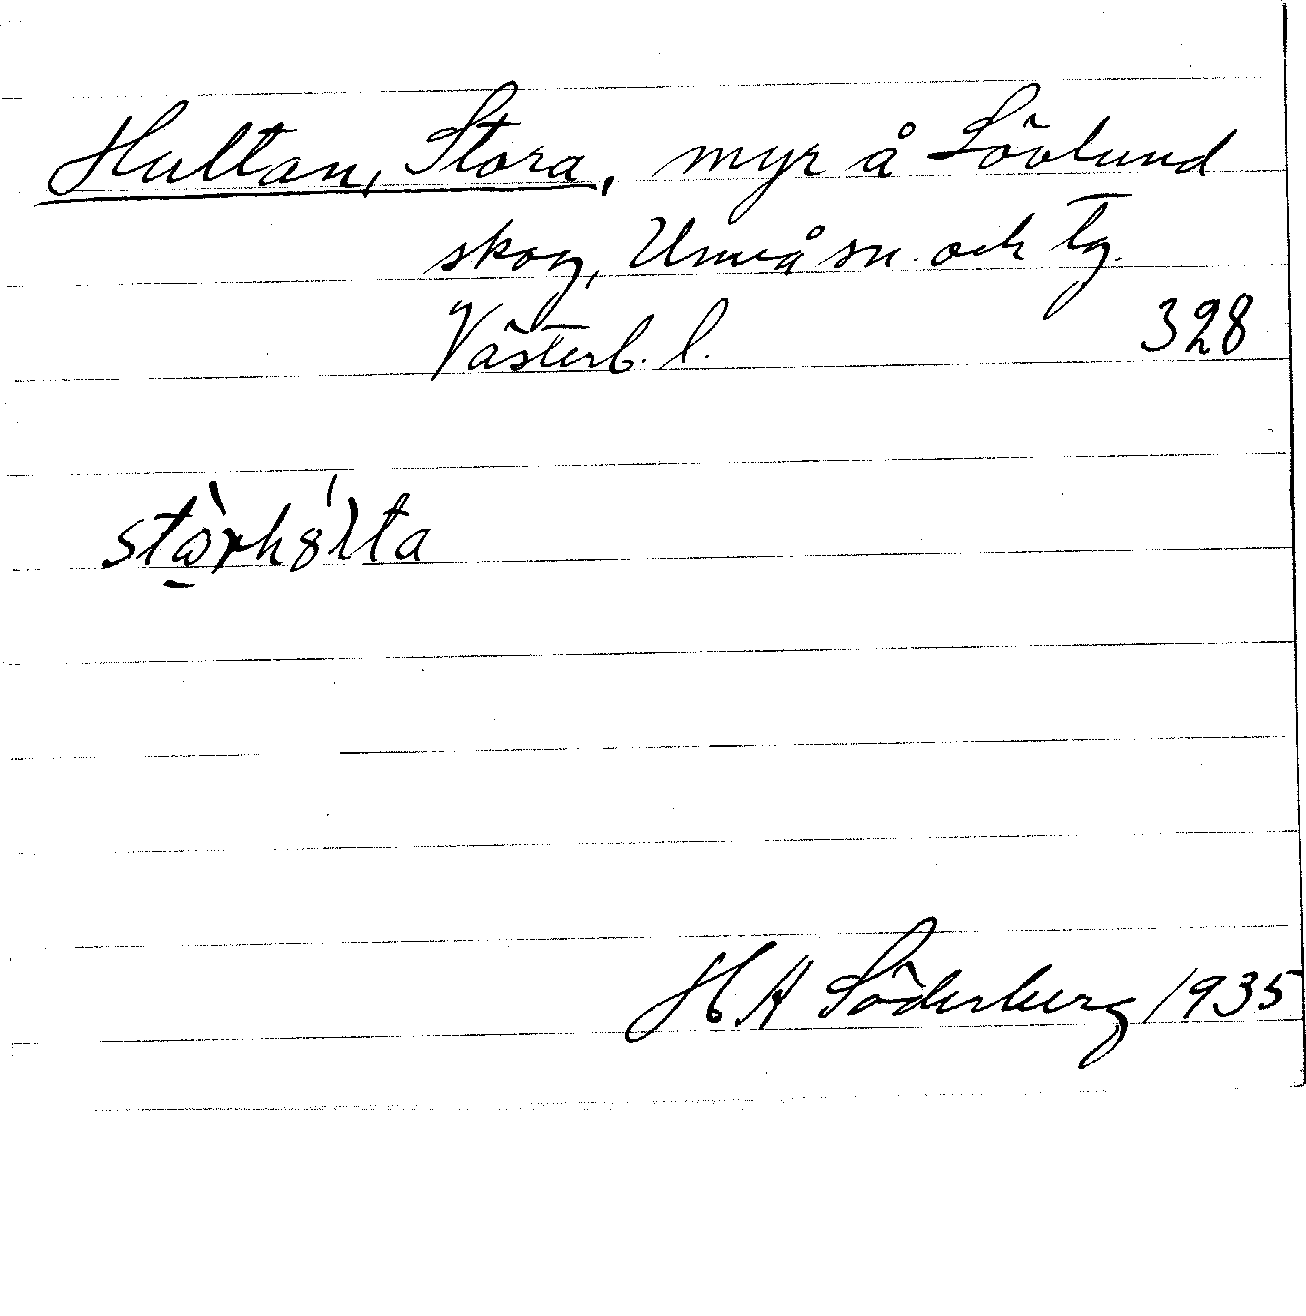 Hultan, Stora, myr å Lövlund
skog, Umeå sn. och tg.
Västerb. l. 328
stὼrh8́lta
H A Söderberg 1935